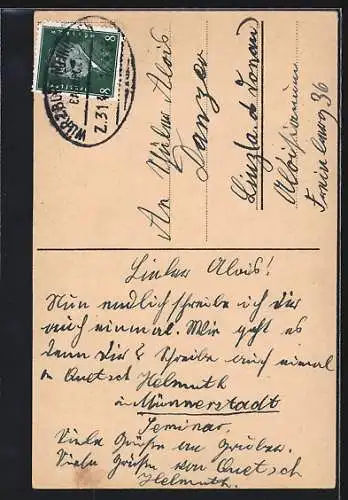 WÜRZBURG
Z.31
8
8
An Schüler Alois
Danzer
Linz a. d. Donau
Aloisianum
Freinberg 36
Lieber Alois!
Nun endlich schreibe ich dir
auch einmal. Wie geht es
denn dir? Schreibe auch einmal
an Quetsch Helmuth
in Münnerstadt
Seminar.
Viele Grüße an
Viele Grüße von Quetsch
Helmuth.